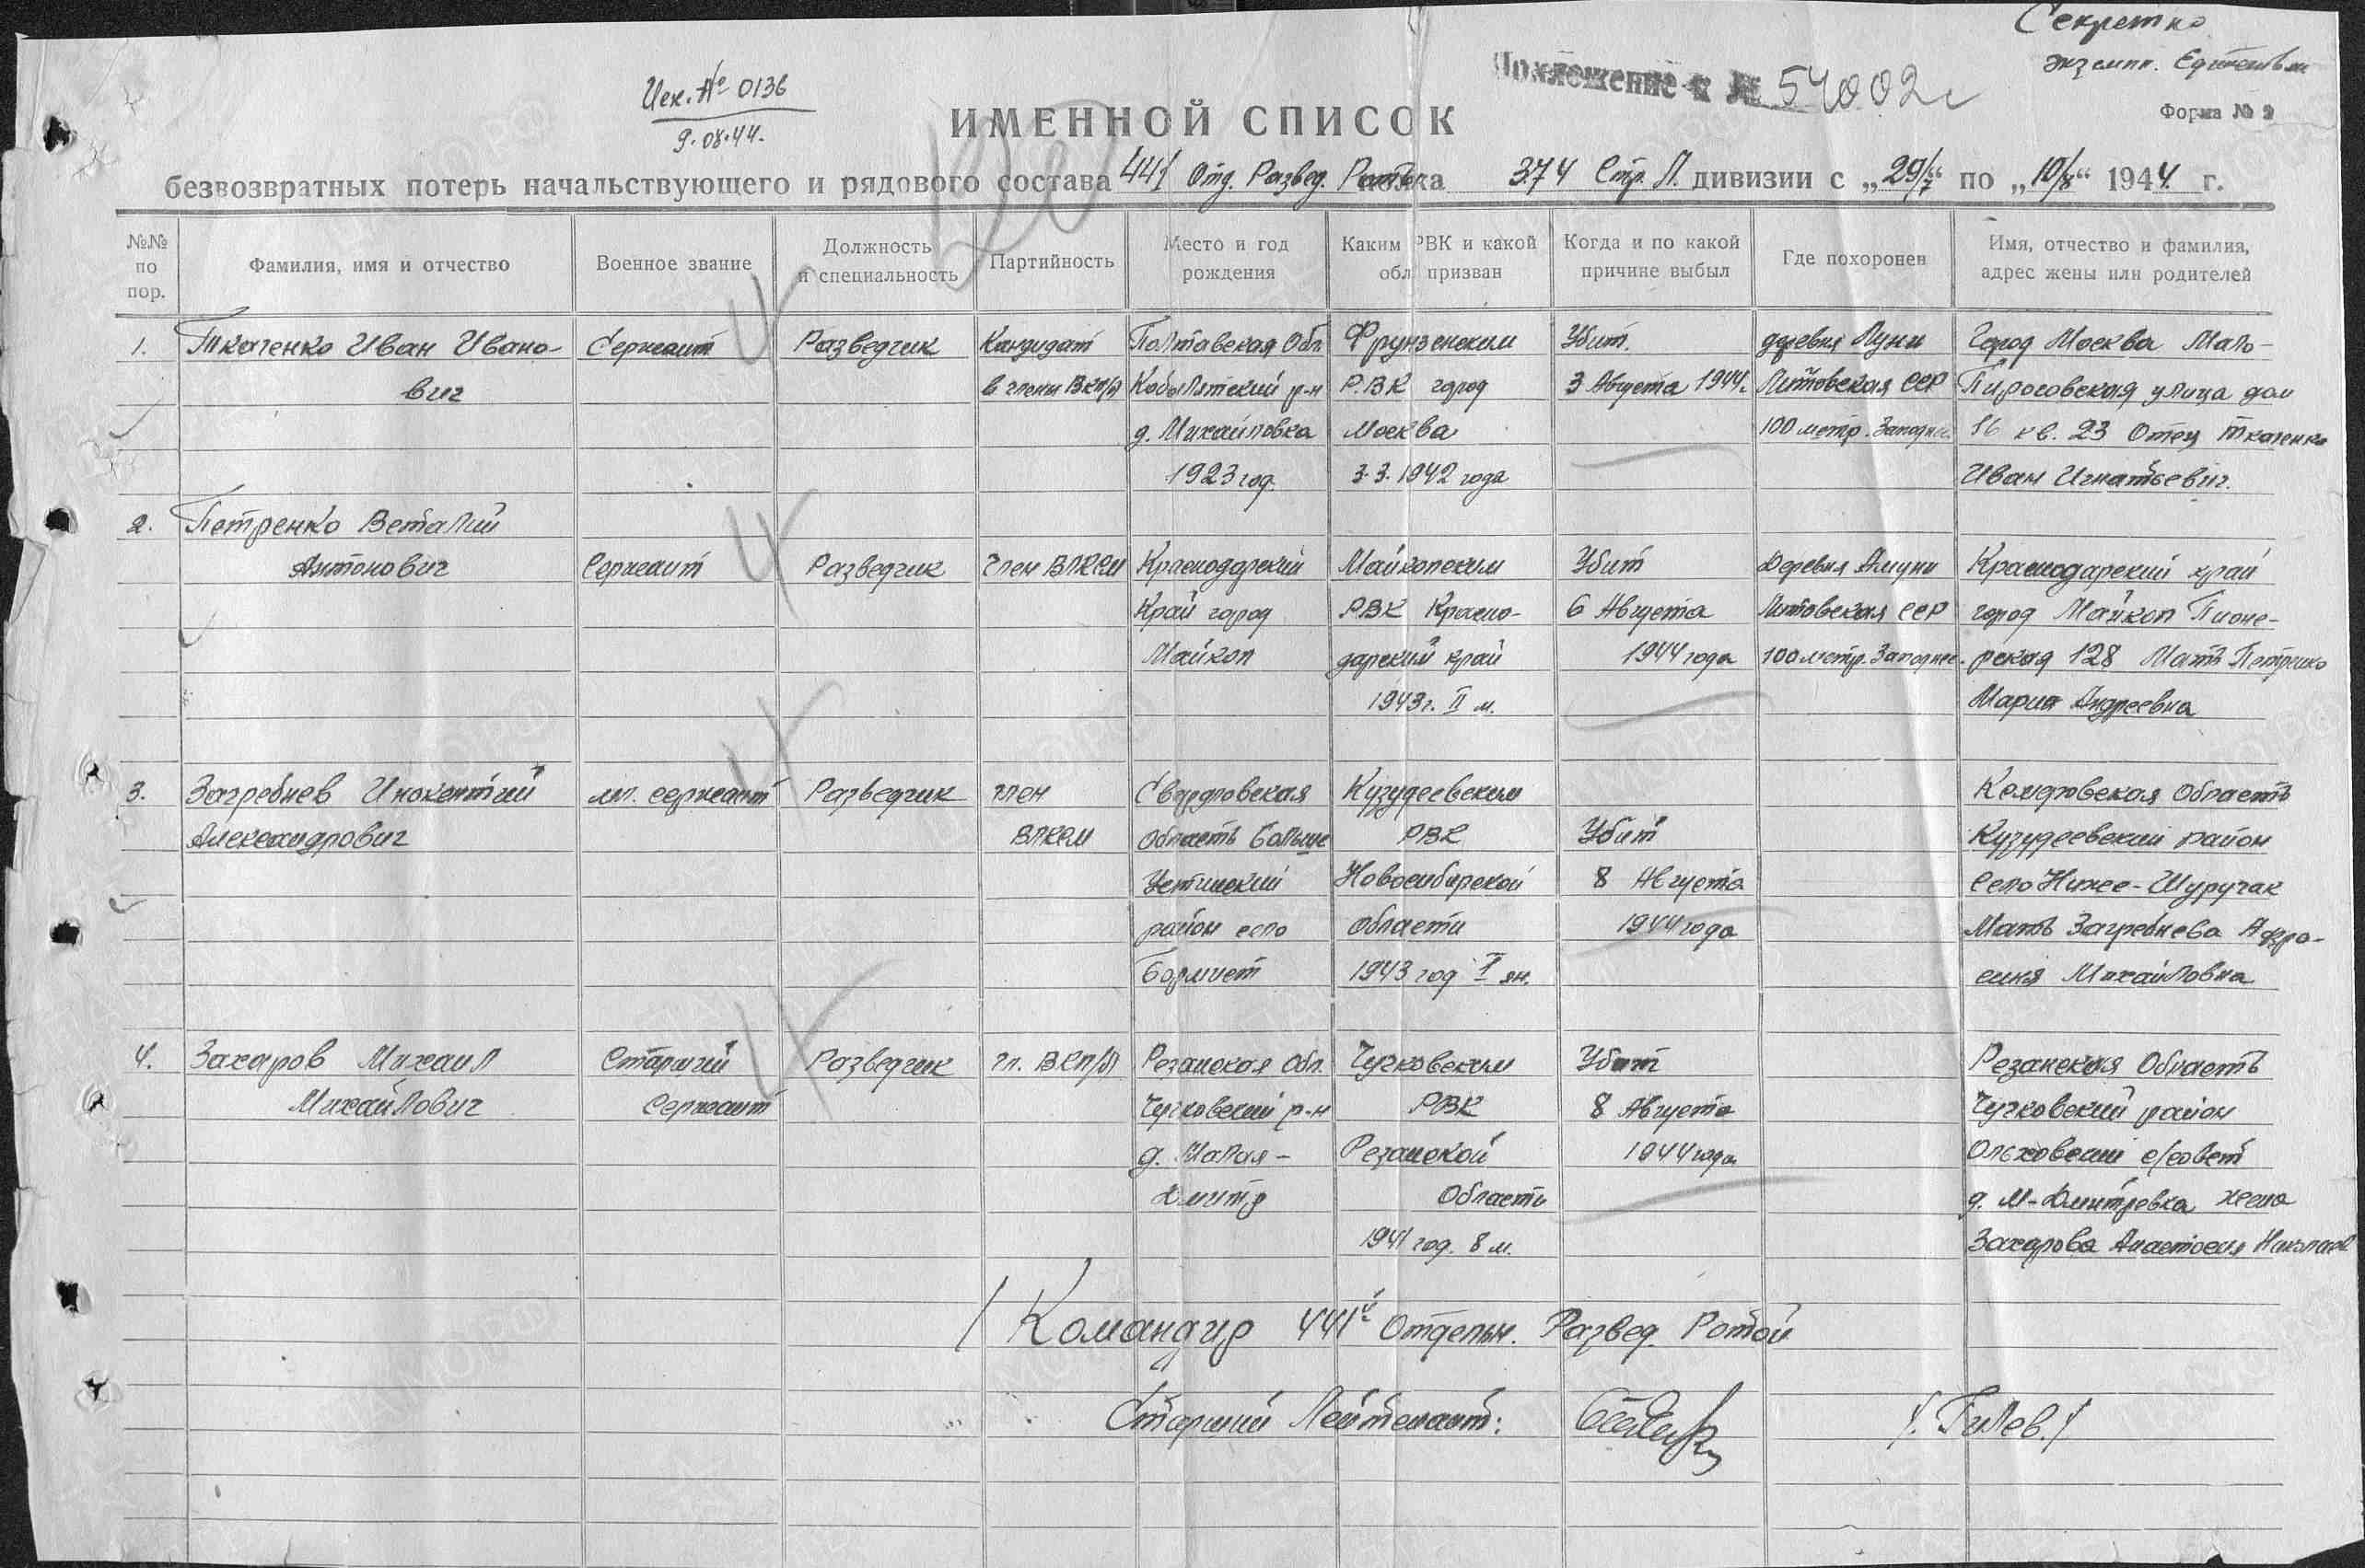 Секретно
экземпл. Единствен
Исх. № 0136
9.08.44.
Приложение к № 54002с
Форма № 2
ИМЕННОЙ СПИСОК
безвозвратных потерь начальствующего и рядового состава 441 Отд. Развед. Роты полка 374 Стр. Л. дивизии с „29/7“ по „10/8“ 1944 г.
№№ по пор.
Фамилия, имя и отчество
Военное звание
Должность и специальность
Партийность
Место и год рождения
Каким РВК и какой обл. призван
Когда и по какой причине выбыл
Где похоронен
Имя, отчество и фамилия, адрес жены или родителей
1. Ткаченко Иван Ивано- Сержант Разведчик Кандидат Полтавская Обл. Фрунзенским Убит. деревня Луни Город Москва Мало-
вич в члены ВКП(б) Кобылятский р-н Р.В.К город 3 Августа 1944г. Литовская ССР Пироговская улица дом
д. Михайловка Москва 100 метр. Западнее 16 кв. 23 Отец Ткаченко
1923 год. 3.3.1942 года Иван Игнатьевич.
2. Петренко Веталий
Антонович Сержант Разведчик Член ВЛКСМ Краснодарский Майкопским Убит Деревня Амуни Краснодарский край
Край город РВК Красно- 6 Августа Литовская ССР город Майкоп Пионе-
Майкоп дарский край 1944 года 100 метр. Западнее. рская 128 Мать Петренко
1943г. II м. Мария Андреевна
3. Загребнев Инокентий мл. сержант Разведчик член Свердловская Кузудеевским Кемеровская Область
Александрович ВЛКСМ Область Больше РВК Убит Кузудеевский район
Устинский Новосибирской 8 Августа село Ниже-Шуручак
район село области 1944 года Мать Загребнева Афро-
Бормист 1943 год I ян. синя Михайловна
4. Захаров Михаил Старший Разведчик чл. ВКП(б) Резанская Обл. Чучковским Убит Резанская Область
Михайлович Сержант Чучковский р-н РВК 8 Августа Чучковский район
д. Малая- Резанской 1944 года Ольховский с/совет
Дмитр Область д. М-Дмитревка жена
1941 год. 8 м. Захарова Анастосия Николаев
/ Командир 441й Отдельн. Развед. Ротой
Старший Лейтенант: /. Гилев. /